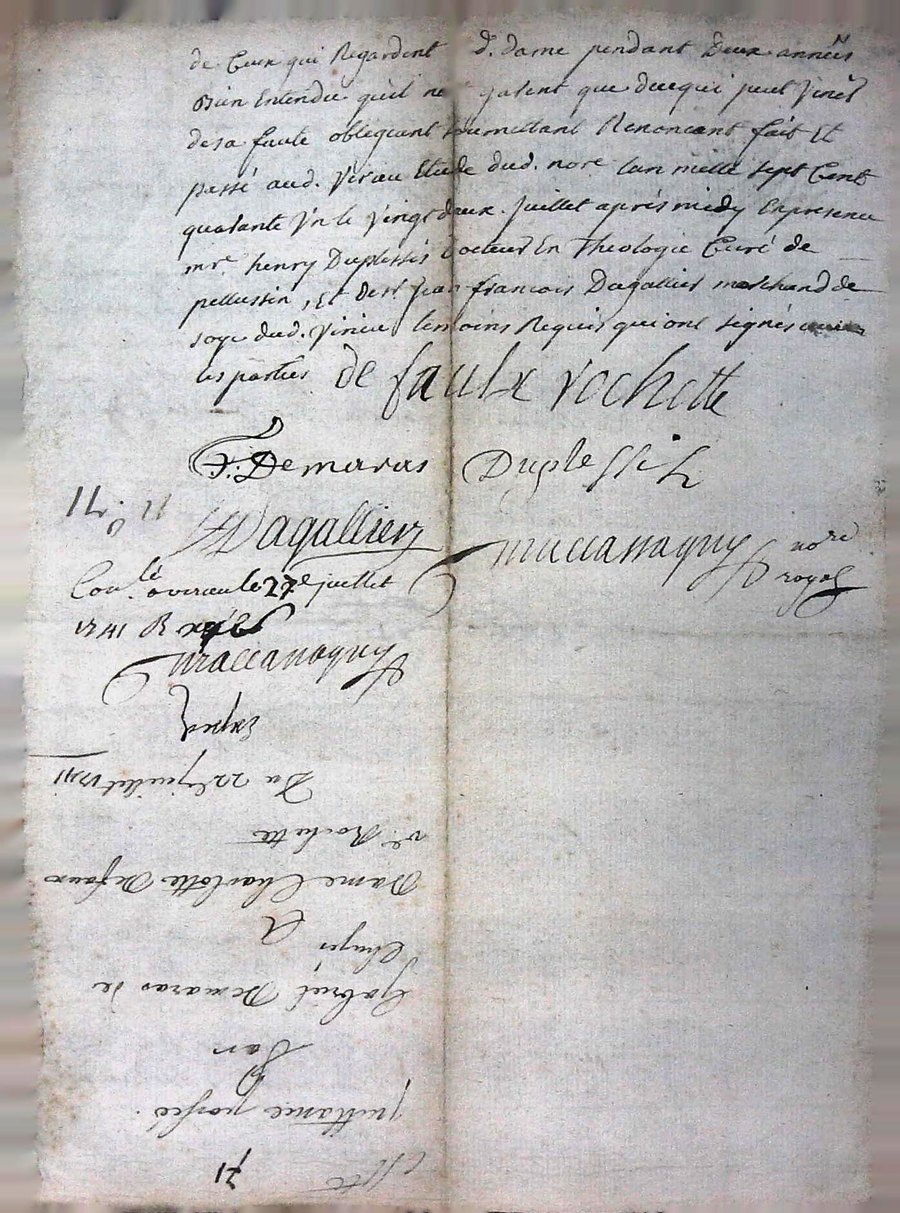 de Ceux qui Regardent d. dame pendant deux années
Bien Entendu quil ne que de ce qui peut Venir
de sa faute obligeant soumettant Renoncant fait Et
passé aud. Virieu Etude dud. nore lan mille Sept Cent
quarante Vn le Vingt deux Juillet aprés midy En presence
mre. henry Duplessis docteur En Theologie Curé de
pellussin, Et de sr. Jean francois Dagallier marchand de
soye dud. Virieu temoins Requis qui ont signés
les parties de faulx rochette
F. Demaras Duplessis
Dagallier
maccanagny nore
royal
Con.lé a virieu le 27e juillet
1741 R
maccanagny
Exped
Du 22e juillet 1741
ve. Rochette
Dame Charlotte Defaux
A
Clugis
Gabriel Demaras de
Par
quittance passée
71